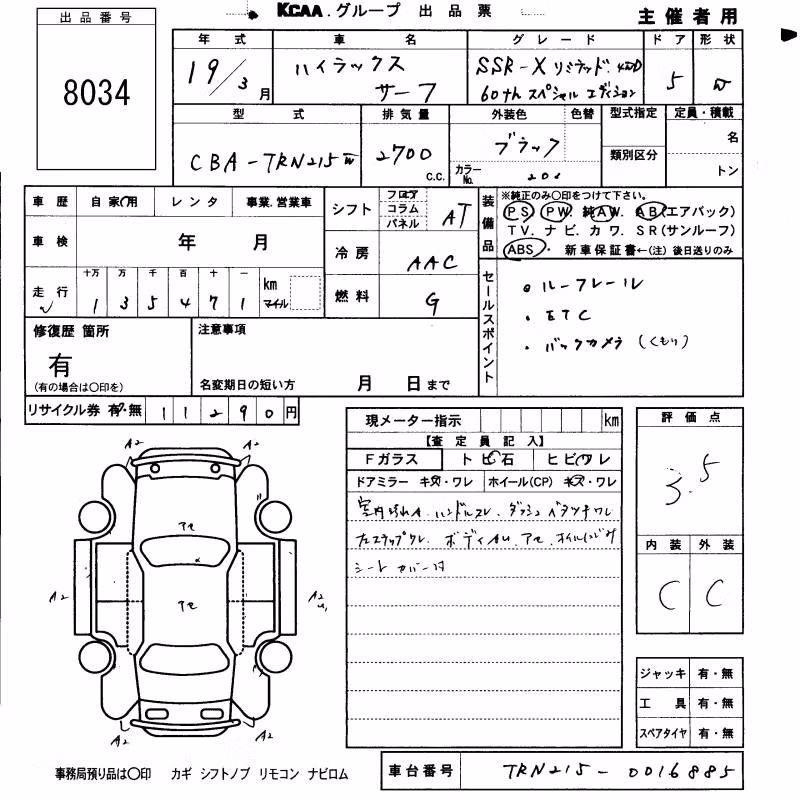 KCAA.グループ 出品票
主催者用
出品番号
8034
年式 車名 グレード ドア 形状
19/3月 ハイラックス サーフ SSR-X リミテッド 4WD 5 W
60th スペシャル エディション
型式 排気量 外装色 色替 型式指定 定員・積載
CBA-TRN215W 2700 c.c. ブラック カラーNo. 202 類別区分 名
トン
車歴 自家用 レンタ 事業.営業車
車検 年 月
走行 十万 万 千 百 十 一 km マイル
1 3 5 4 7 1
シフト フロア コラム パネル AT
冷房 AAC
燃料 G
装備品 ※純正のみ〇印をつけて下さい。
PS PW. 純AW. AB(エアバック)
TV. ナビ. カワ. SR(サンルーフ)
ABS・ 新車保証書←(注) 後日送りのみ
セールスポイント
・ルーフレール
・ETC
・バックカメラ (くもり)
修復歴 箇所
有
(有の場合は〇印を)
注意事項
名変期日の短い方 月 日まで
リサイクル券 有・無 11290円
現メーター指示 km
【査定員記入】
Fガラス トビ石 ヒビワレ
ドアミラー キズ・ワレ ホイール(CP) キズ・ワレ
室内汚れA. ハンドルスレ. ダッシュ ベタツキワレ
ボディAU. アセ.
シートカバー付
評価点
3.5
内装 外装
C C
ジャッキ 有・無
工具 有・無
スペアタイヤ 有・無
A2 A2
アセ
アセ
A2 A2
A2 A2
事務局預り品は〇印 カギ シフトノブ リモコン ナビロム
車台番号 TRN215-0016885